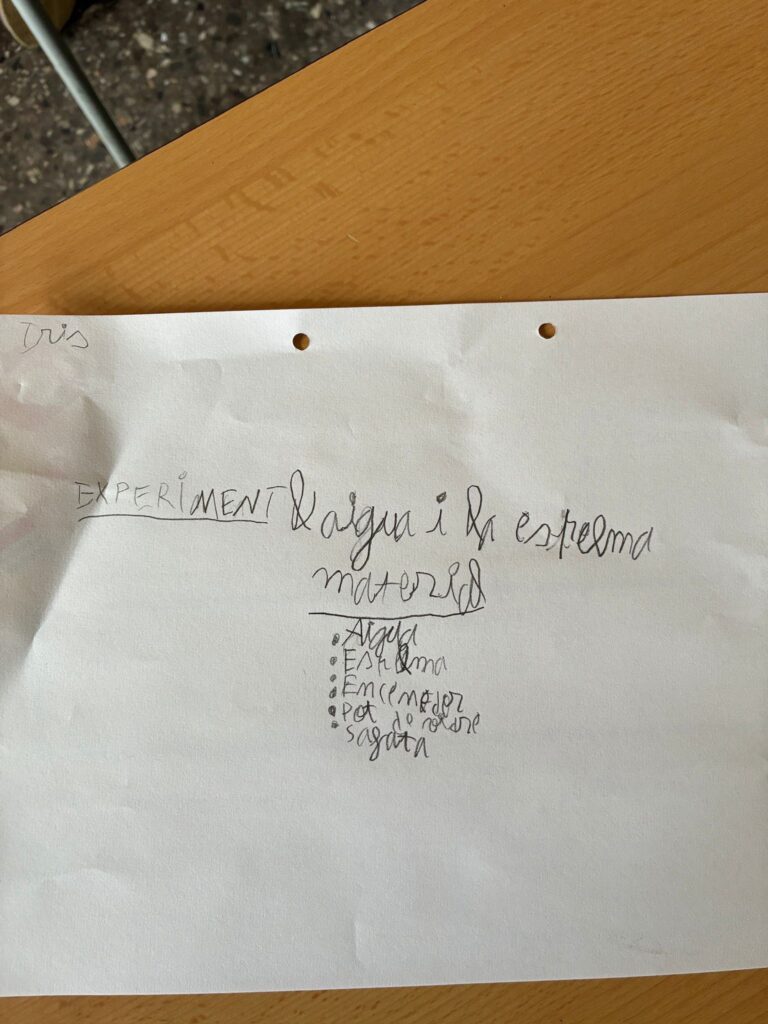 Iris
EXPERIMENT l'aigua i la espelma
material
• Aigua
• Espelma
• Encenedor
• Pot de
• sagata